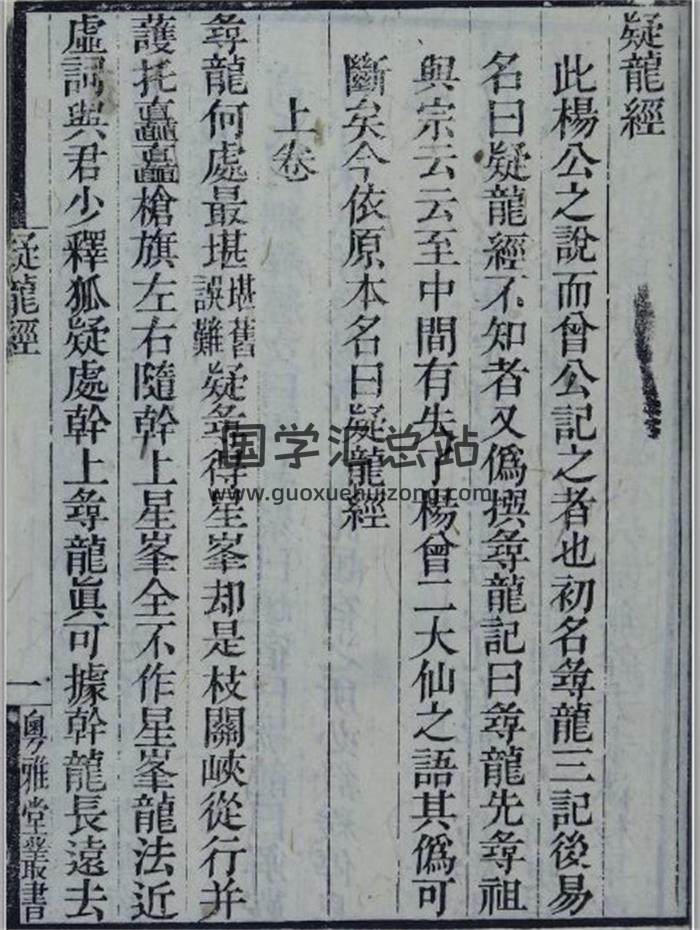 疑龍經
此楊公之說而曾公記之者也初名尋龍三記後易
名曰疑龍經不知者又僞撰尋龍記曰尋龍先尋祖
與宗云云至中間有失了楊曾二大仙之語其僞可
斷矣今依原本名曰疑龍經
上卷
尋龍何處最堪堪舊誤難疑尋得星峯却是枝關峽從行并
護托矗矗槍旗左右隨幹上星峯全不作星峯龍法近
虛詞與君少釋狐疑處幹上尋龍眞可據幹龍長遠去
疑龍經
一
粵雅堂叢書
国学汇总站
www.guoxuehuizong.com